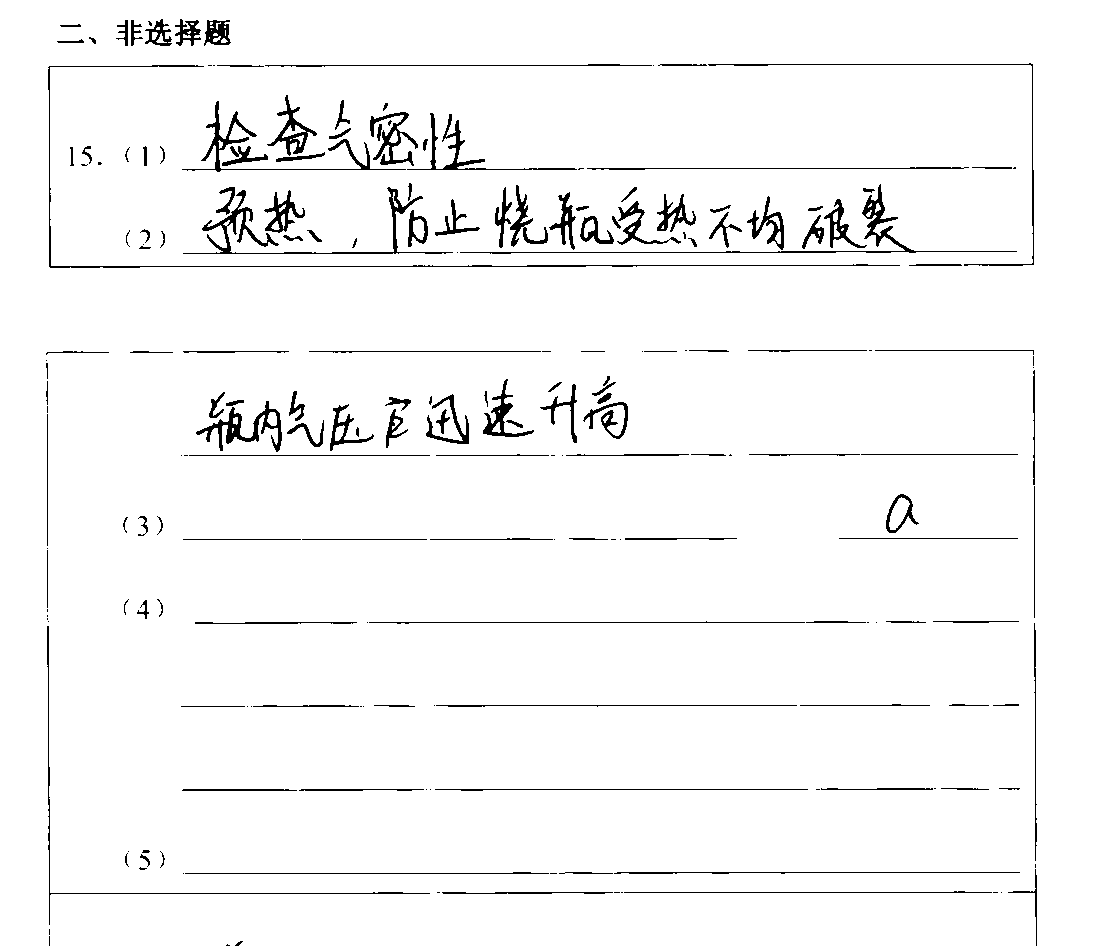 二、非选择题
15.（1）检查气密性
（2）预热，防止烧瓶受热不均破裂
瓶内气压迅速升高
（3） a
（4）
（5）